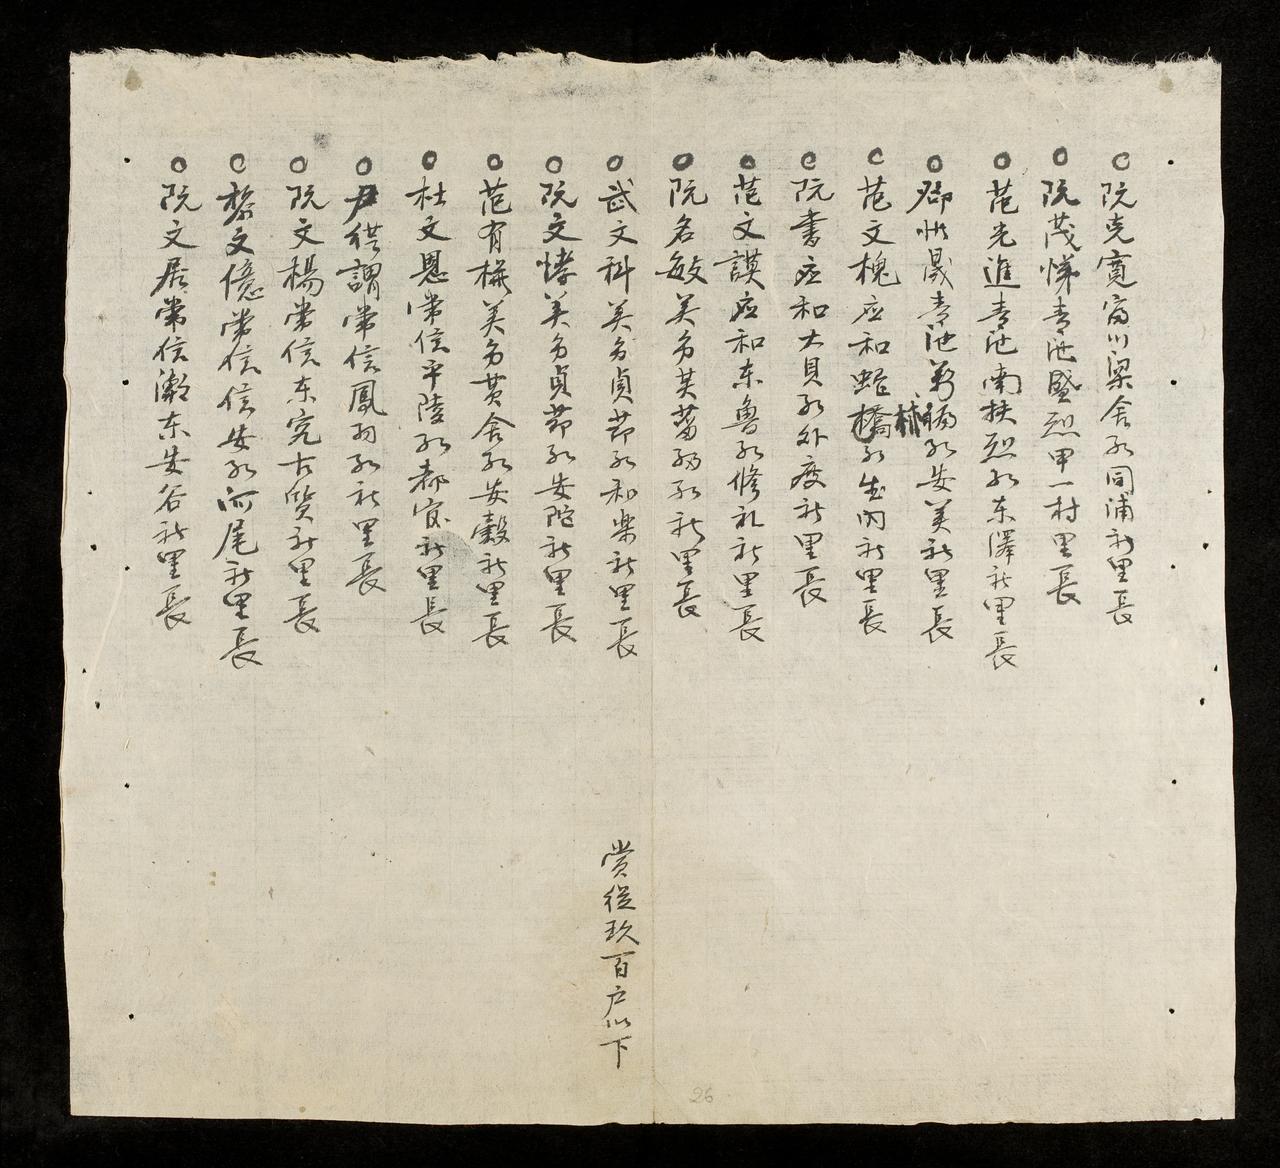 ○阮克寬富川梁舍總同浦社里長
○阮茂悌青池盛烈甲一村里長
○范光進青池南扶烈總东澤社里長
○鄧惟晟青池萬福總安美社里長
○范文槐应和橋總生內社里長
○阮書应和大貝總外度社里長
○范文謨应和东魯總修礼社里長
○阮名敏美多總社里長
○武文科美多貞莭總和樂社里長
○阮文悖美多貞莭總安陀社里長
○范有美多黄舍總安穀社里長
○杜文恩常信平陵總社里長
○尹謂常信鳳羽總社里長
○阮文楊常信东究古賢社里長
○黎文億常信信安總河尾社里長
○阮文居常信潮东安谷社里長
賞從玖百户以下
26